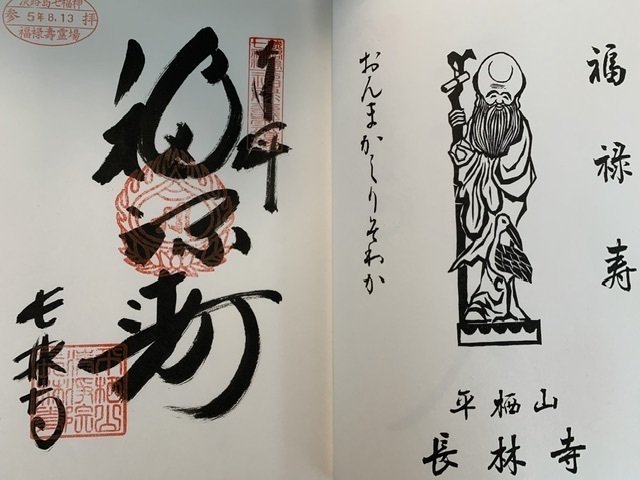 福禄寿
おんまかしりそわか
平栖山
長林寺
淡路島七福神
参 5年8.13 拝
福禄寿霊場
奉拝
福禄寿
長林寺